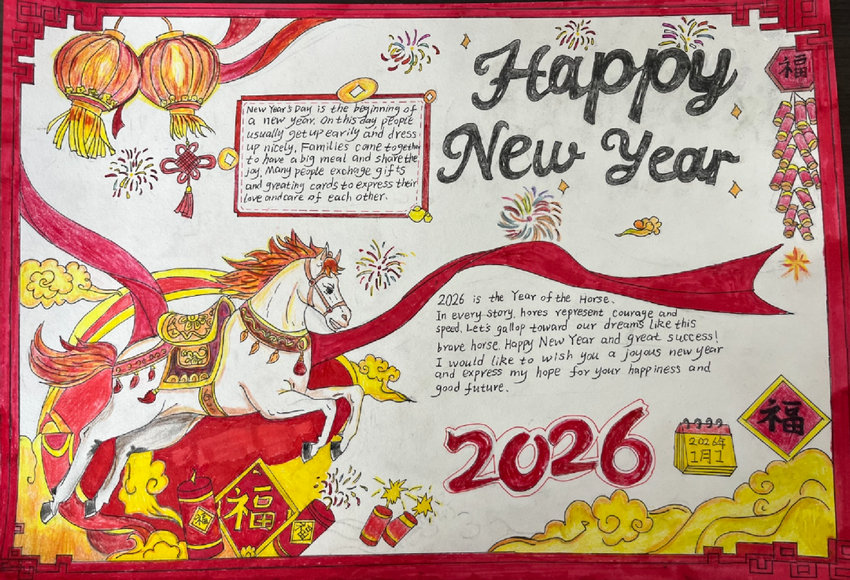 Happy
New Year
福
New Year's Day is the beginning of
a new year. On this day, people
usually get up earily and dress
up nicely. Families come together
to have a big meal and share the
joy. Many people exchage gifts
and greating cards to express their
love and care of each other.
2026 is the Year of the Horse.
In every story, hores represent courage and
speed. Let's gallop toward our dreams like this
brave horse. Happy New Year and great success!
I would like to wish you a joyous new year
and express my hope for your happiness and
good future.
2026
2026年
1月1
福
福